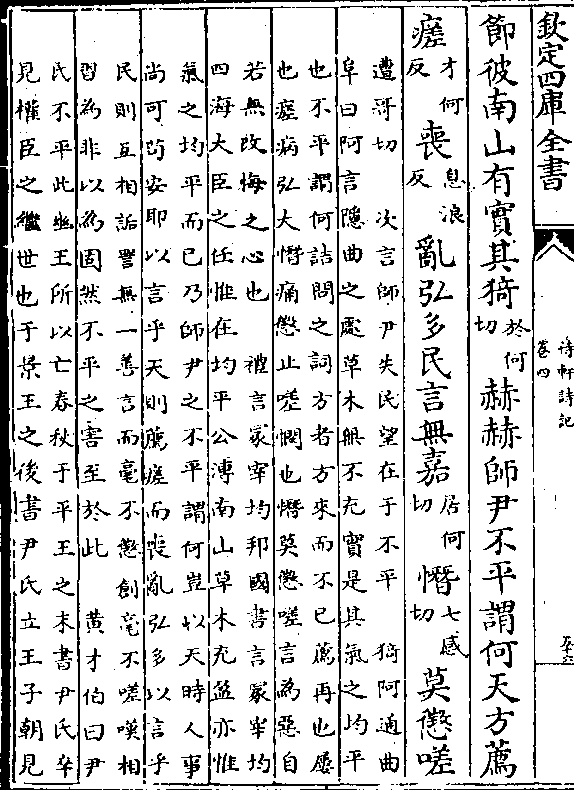 欽定四庫全書
待軒詩記
卷四
節彼南山有實其猗於何切赫赫師尹不平謂何天方薦
瘥才何反喪息浪反亂弘多民言無嘉居何切憯七感切莫懲嗟
遭哥切　次言師尹失民望在于不平　猗阿通曲
阜曰阿言隱曲之處草木無不充實是其氣之均平
也不平謂何詰問之詞方者方來而不已薦再也屢
也瘥病弘大憯痛懲止嗟憫也憯莫懲嗟言為惡自
若無改悔之心也　禮言冢宰均邦國書言冢宰均
四海大臣之任惟在均平公溥南山草木充盈亦惟
氣之均平而已乃師尹之不平謂何豈以天時人事
尚可苟安耶以言乎天則薦瘥而喪亂弘多以言乎
民則互相詬詈無一善言而毫不懲創毫不嗟嘆相
習為非以為固然不平之害至於此　黃才伯曰尹
氏不平此幽王所以亡春秋于平王之末書尹氏卒
見權臣之繼世也于景王之後書尹氏立王子朝見